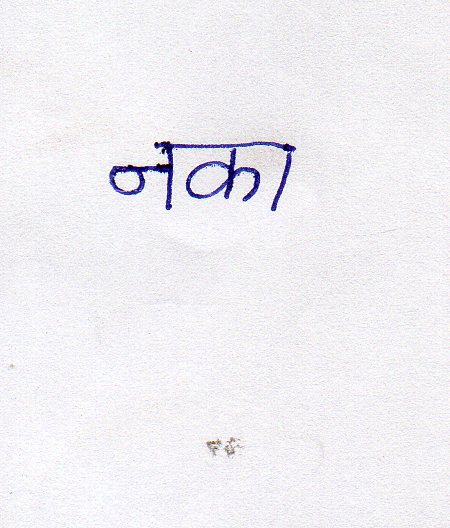 नका